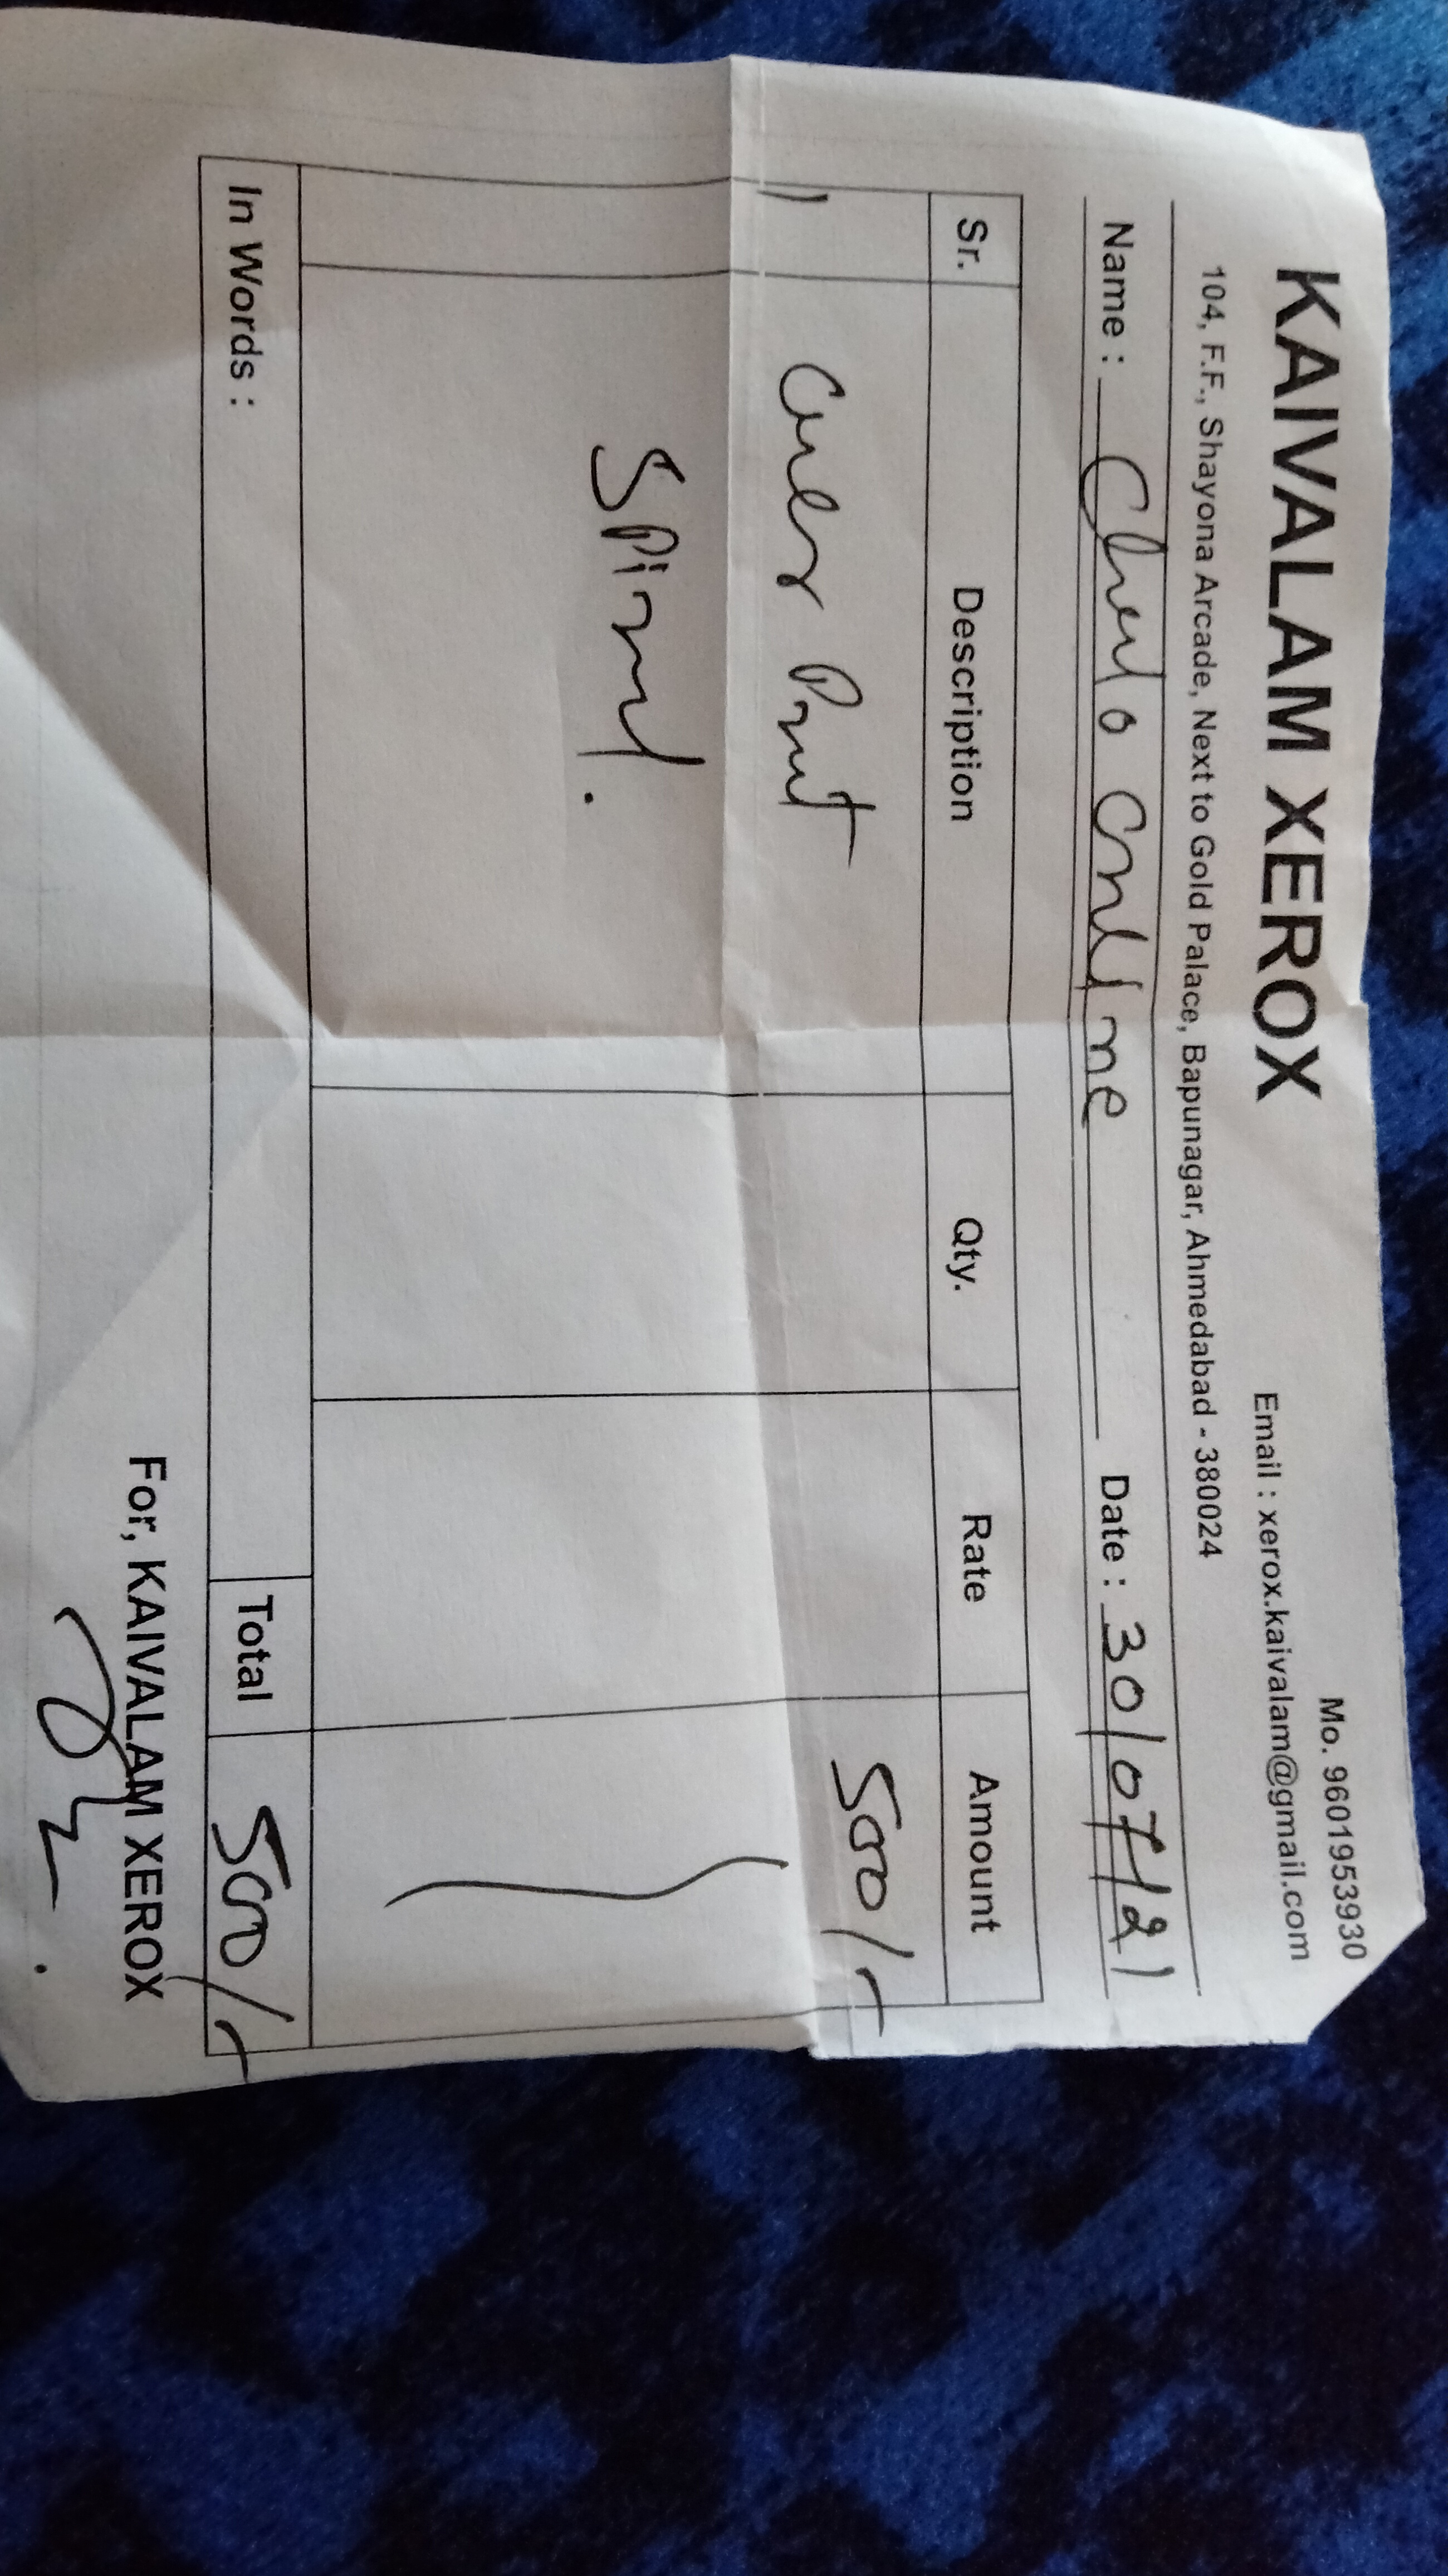 Mo. 9601953930
KAIVALAM XEROX
Email : xerox.kaivalam@gmail.com
104, F.F., Shayona Arcade, Next to Gold Palace, Bapunagar, Ahmedabad - 380024
Name : online Date : 30/07/21
Sr. Description Qty. Rate Amount
1) Print 500/-
Spiral.
In Words : Total 500/-
For, KAIVALAM XEROX